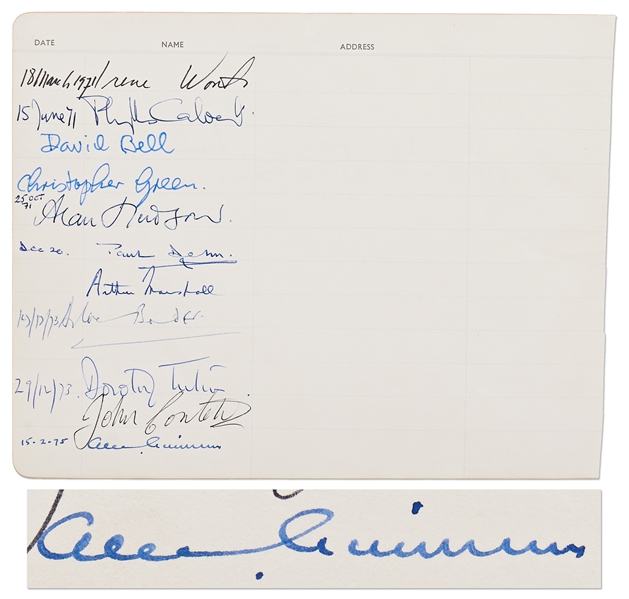 DATE NAME ADDRESS
18 March 1971 Irene Worth
15 June 71 Phyllis Calvert.
David Bell
Christopher Green.
25 OCT 71 Alan Hudson.
Dec 20. Paul Dehn.
Arthur Marshall
/73
29/12/73. Dorothy Tutin
John
15-2-75 Alec Guinness
Alec Guinness